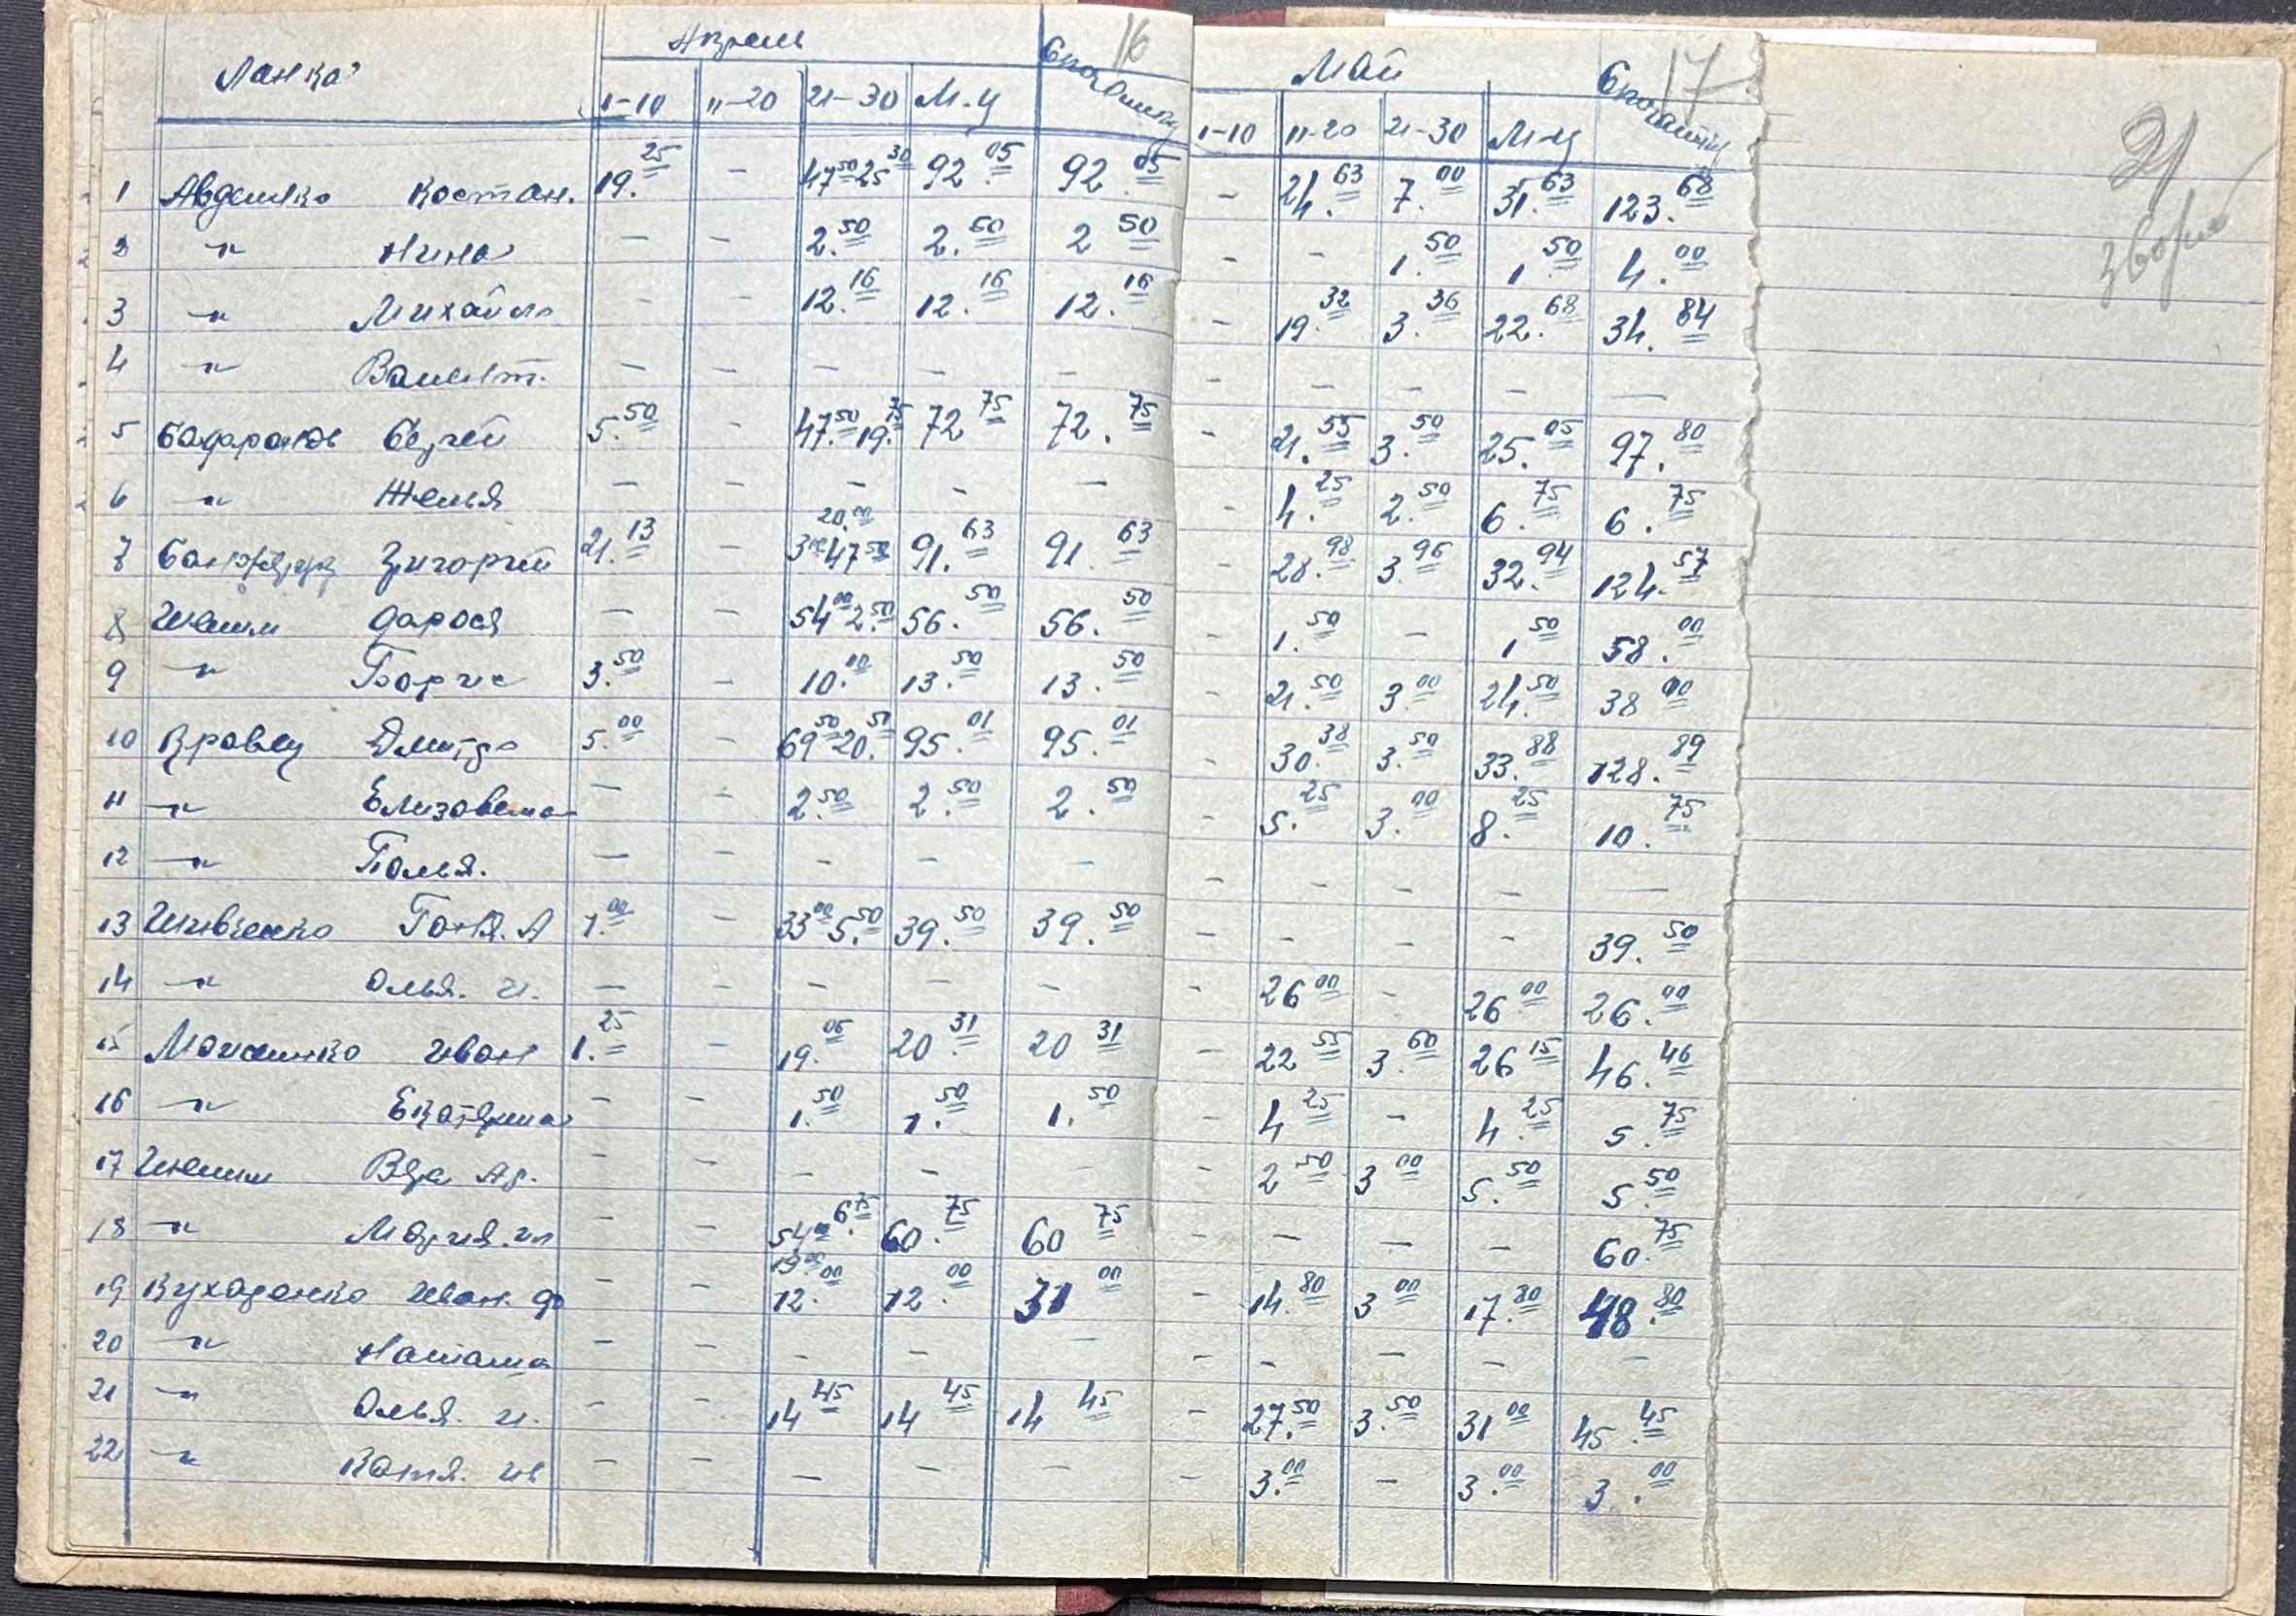 Ланка Апрель 16 Май 17
1-10 11-20 21-30 М-ц Спочатку 1-10 11-20 21-30 М-ц Спочатку
21
1 Авдеенко Костан. 19.25 - 47.50 25.30 92.05 92.05 - 24.63 7.00 31.63 123.68
2 -"- Нина - - 2.50 2.50 2.50 - - 1.50 1.50 4.00
3 -"- Михайло - - 12.16 12.16 12.16 - 19.32 3.36 22.68 34.84
4 -"- Валент. - - - - - - - - - -
5 Сергей 5.50 - 47.50 19.75 72.75 72.75 - 21.55 3.50 25.05 97.80
6 -"- - - - - - - 4.25 2.50 6.75 6.75
20.00
7 Григорий 21.13 - 3.00 47.50 91.63 91.63 - 28.98 3.96 32.94 124.57
8 - - 54.00 2.50 56.50 56.50 - 1.50 - 1.50 58.00
9 -"- Борис 3.50 - 10.00 13.50 13.50 - 21.50 3.00 24.50 38.00
10 Кравец Дмитро 5.00 - 69.50 20.50 95.01 95.01 - 30.38 3.50 33.88 128.89
11 -"- Елизовета - - 2.50 2.50 2.50 - 5.25 3.00 8.25 10.75
12 -"- Голья. - - - - - - - - - -
13 Ганя. А 1.00 - 33.00 5.50 39.50 39.50 - - - - 39.50
14 -"- Олья. И. - - - - - - 26.00 - 26.00 26.00
15 Моисеенко Иван 1.25 - 19.06 20.31 20.31 - 22.55 3.60 26.15 46.46
16 -"- Екатерина - - 1.50 1.50 1.50 - 4.25 - 4.25 5.75
17 - - - - - - 2.50 3.00 5.50 5.50
18 -"- Мария. - - 54.00 6.75 60.75 60.75 - - - - 60.75
19.00
19 Кухаренко Иван. Ф - - 12.00 12.00 31.00 - 14.80 3.00 17.80 48.80
20 -"- Наташа - - - - - - - - - -
21 -"- Олья. И. - - 14.45 14.45 14.45 - 27.50 3.50 31.00 45.45
22 -"- Катя. Ив - - - - - - 3.00 - 3.00 3.00